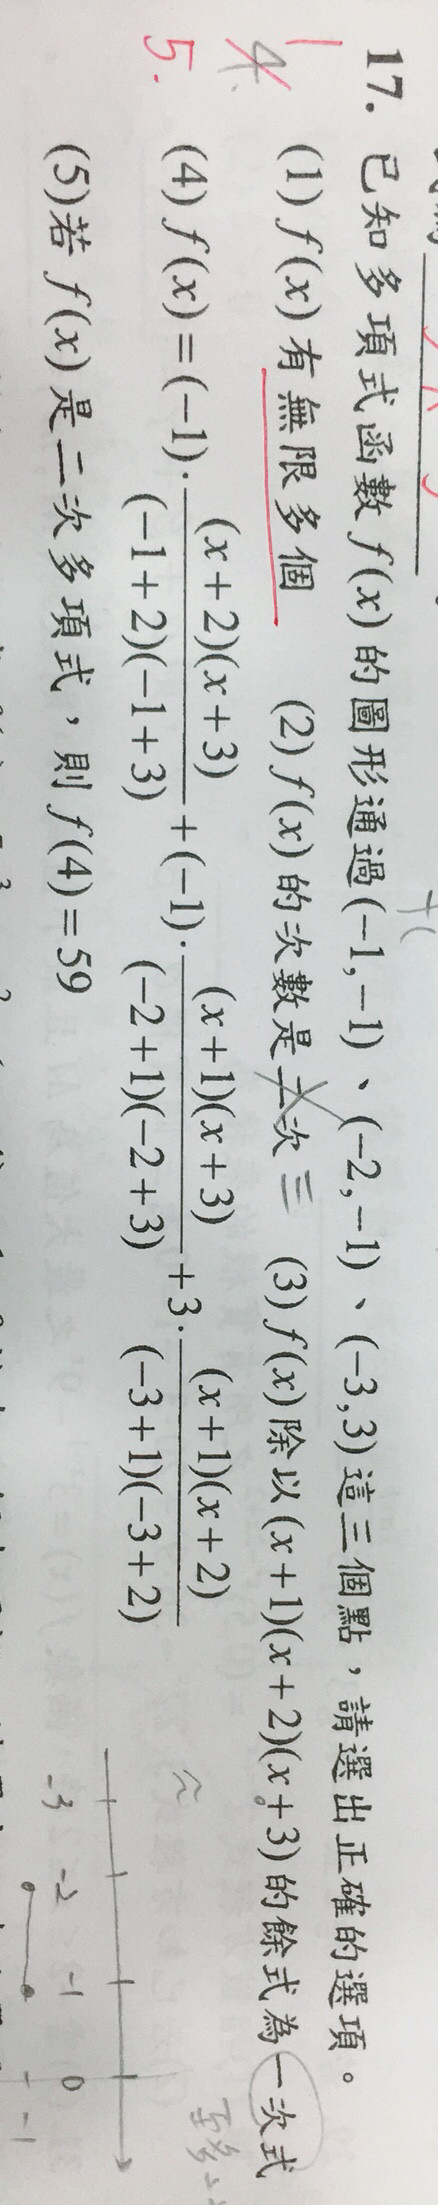 17. 已知多項式函數 f(x) 的圖形通過 (-1,-1)、(-2,-1)、(-3,3) 這三個點，請選出正確的選項。
(1) f(x) 有無限多個 (2) f(x) 的次數是二次 三 (3) f(x) 除以 (x+1)(x+2)(x+3) 的餘式為一次式
至多
1
4.
5.
(4) f(x)=(-1)·\frac{(x+2)(x+3)}{(-1+2)(-1+3)}+(-1)·\frac{(x+1)(x+3)}{(-2+1)(-2+3)}+3·\frac{(x+1)(x+2)}{(-3+1)(-3+2)}
(5) 若 f(x) 是二次多項式，則 f(4)=59
-3 -2 -1 0
-1